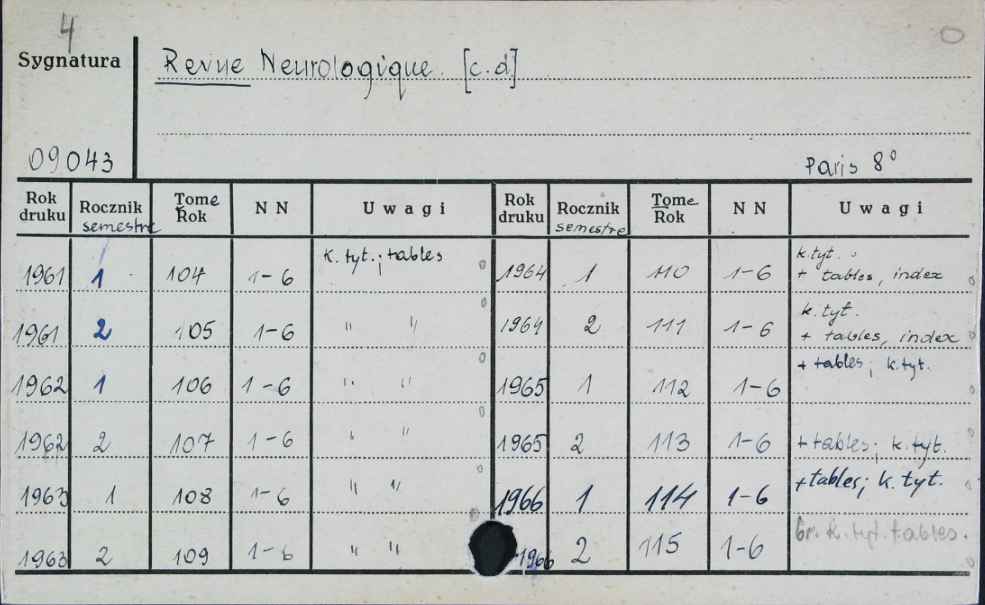 4
Sygnatura
Revue Neurologique. [c.d]
09043
Paris 8°
Rok druku Rocznik semestre Tome Rok NN Uwagi Rok druku Rocznik semestre Tome Rok NN Uwagi
1961 1 104 1-6 k. tyt.; tables 1964 1 110 1-6 k.tyt. + tables, index
1961 2 105 1-6 " " 1964 2 111 1-6 k. tyt. + tables, index
1962 1 106 1-6 " " 1965 1 112 1-6 + tables; k. tyt.
1962 2 107 1-6 " " 1965 2 113 1-6 + tables; k. tyt.
1963 1 108 1-6 " " 1966 1 114 1-6 + tables; k. tyt.
1963 2 109 1-6 " " 1966 2 115 1-6 br. k. tyt. tables.